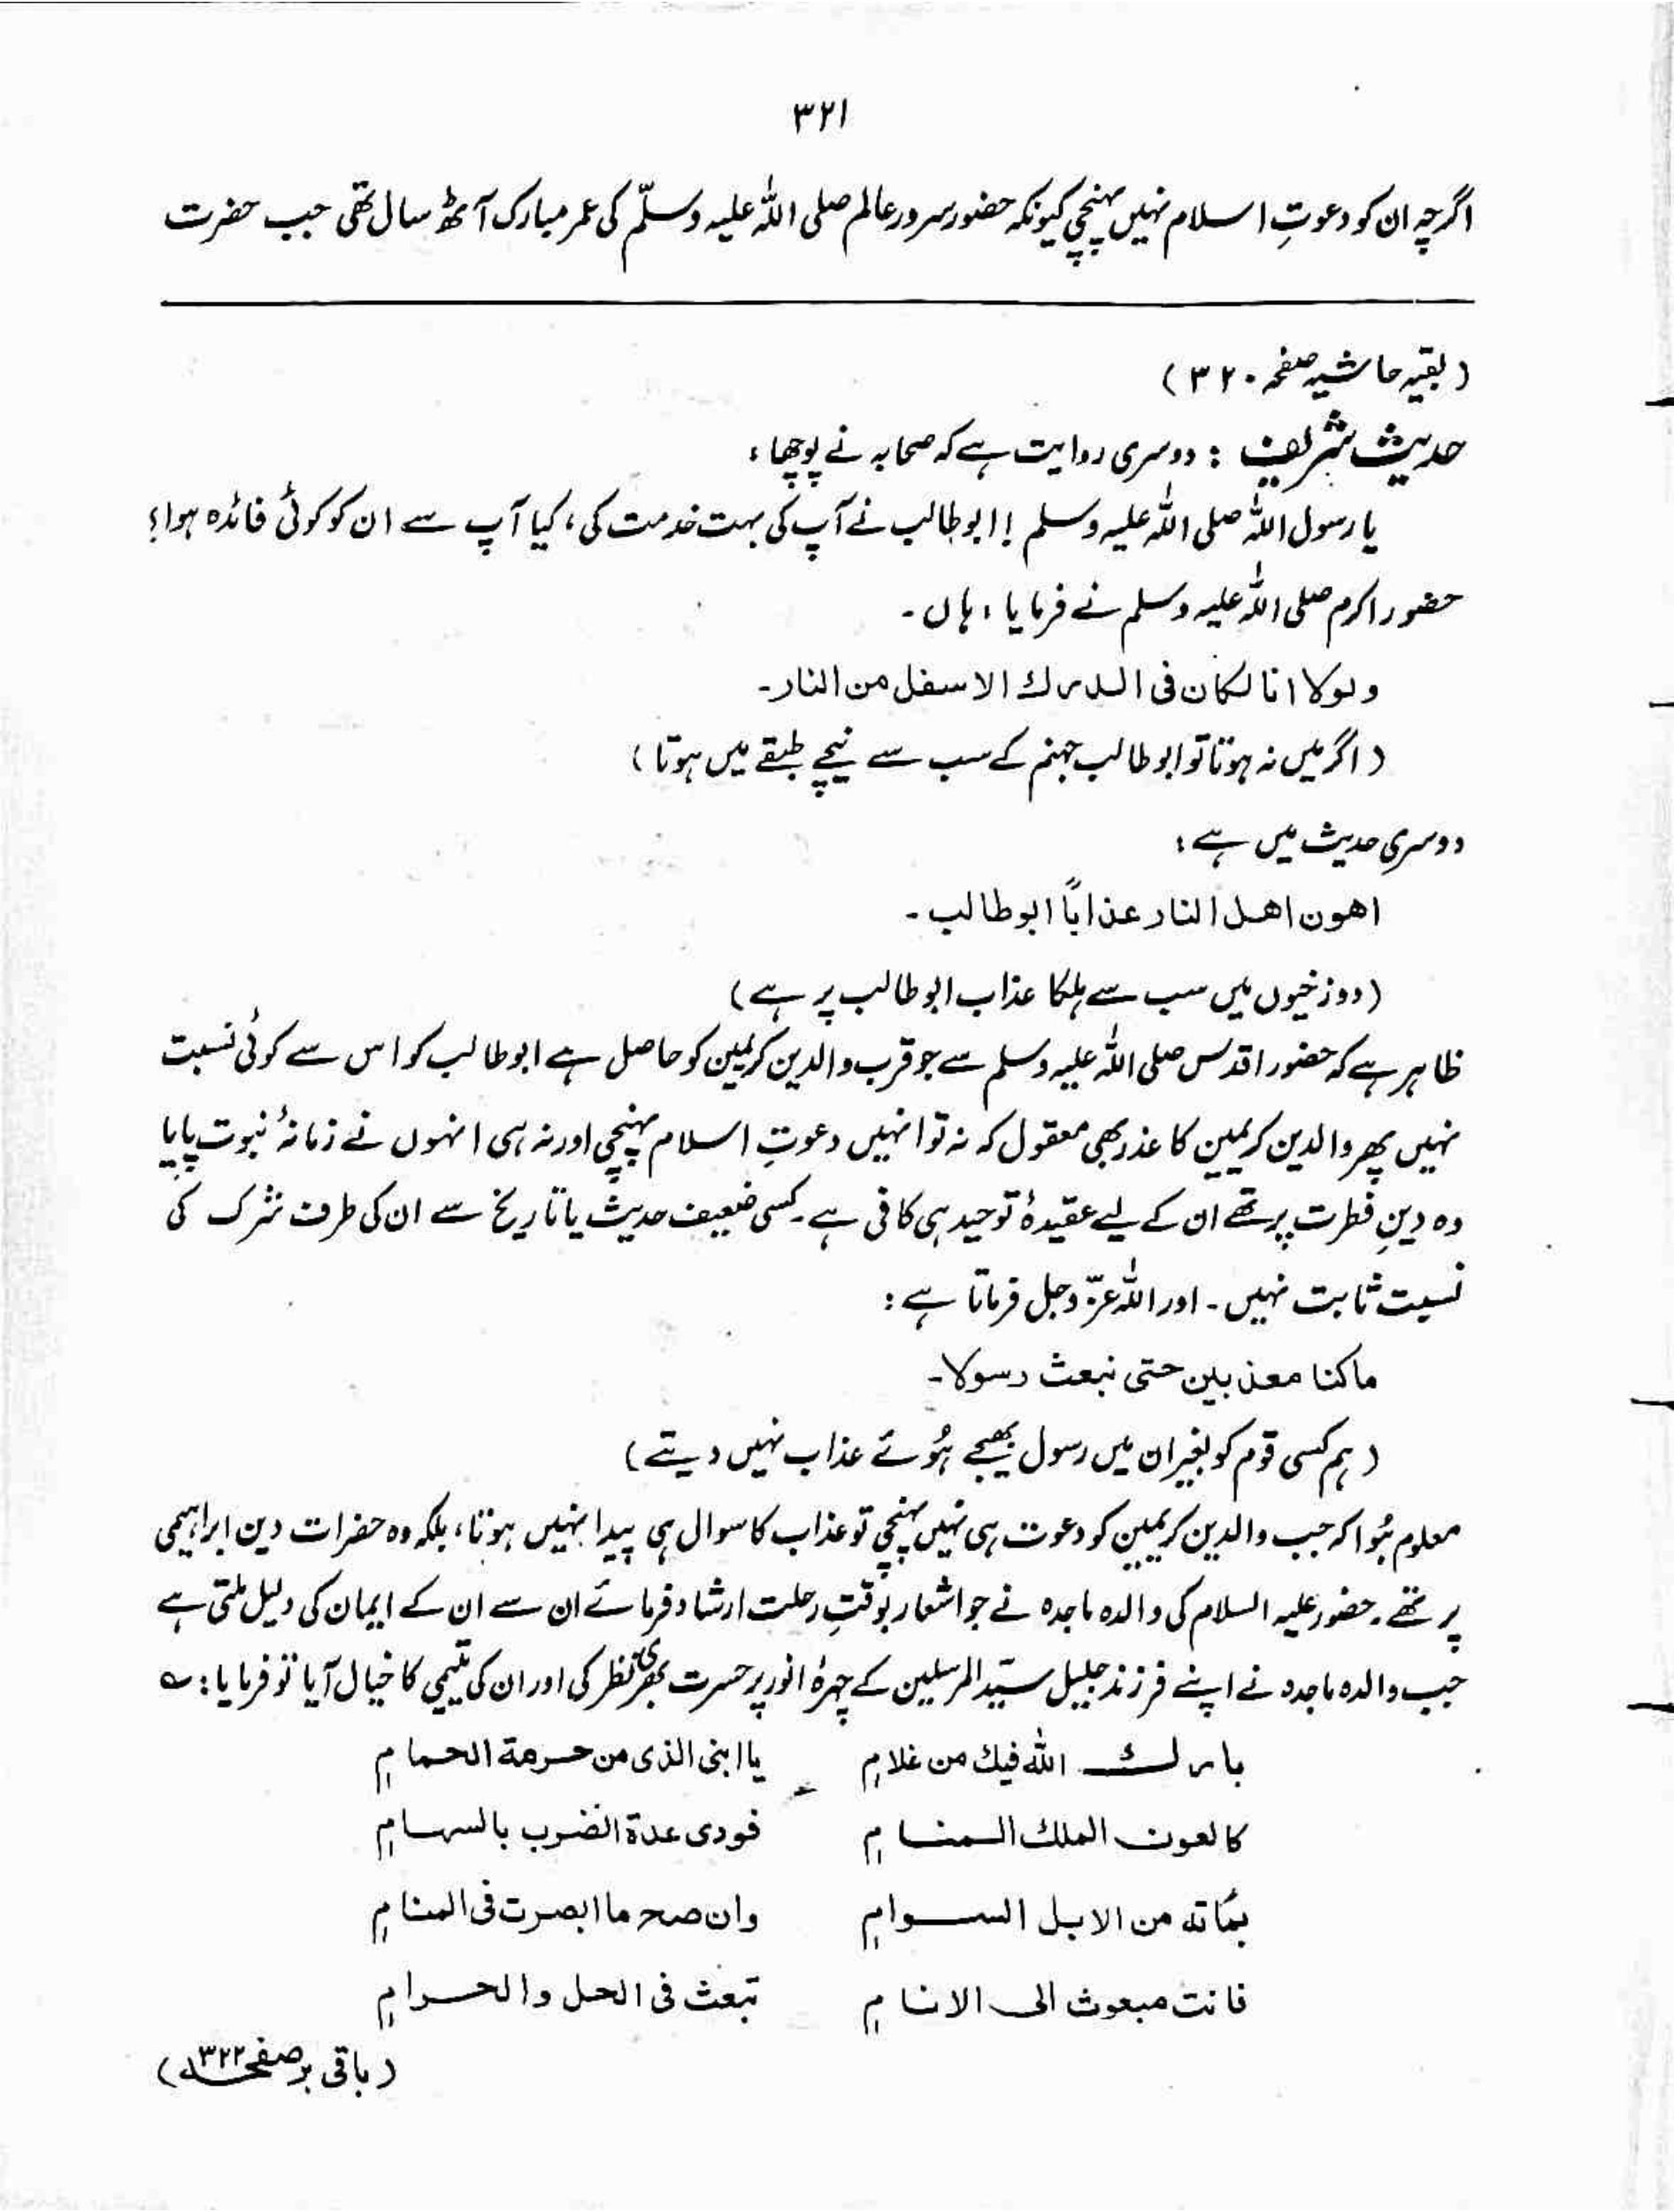 ۳۲۱
اگرچہ ان کو دعوتِ اسلام نہیں پہنچی کیونکہ حضور سرور عالم صلی اللہ علیہ وسلّم کی عمر مبارک آٹھ سال تھی جب حضرت
(بقیہ حاشیہ صفحہ ۳۲۰)
حدیث شریف : دوسری روایت ہے کہ صحابہ نے پوچھا :
یا رسول اللہ صلی اللہ علیہ وسلم ! ابوطالب نے آپ کی بہت خدمت کی، کیا آپ سے ان کو کوئی فائدہ ہوا؟
حضور اکرم صلی اللہ علیہ وسلم نے فرمایا، ہاں ۔
ولولا انا لکان فی الدرک الاسفل من النار۔
(اگر میں نہ ہوتا تو ابوطالب جہنم کے سب سے نیچے طبقے میں ہوتا)
دوسری حدیث میں ہے :
اھون اھل النار عذاباً ابوطالب ۔
(دوزخیوں میں سب سے ہلکا عذاب ابوطالب پر ہے)
ظاہر ہے کہ حضور اقدس صلی اللہ علیہ وسلم سے جو قرب والدین کریمین کو حاصل ہے ابوطالب کو اس سے کوئی نسبت
نہیں پھر والدین کریمین کا عذر بھی معقول کہ نہ تو انہیں دعوتِ اسلام پہنچی اور نہ ہی انہوں نے زمانۂ نبوت پایا
وہ دینِ فطرت پر تھے ان کے لیے عقیدۂ توحید ہی کافی ہے۔ کسی ضعیف حدیث یا تاریخ سے ان کی طرف شرک کی
نسبت ثابت نہیں ۔ اور اللہ عزّ وجل فرماتا ہے :
ماکنا معذبین حتی نبعث رسولا۔
(ہم کسی قوم کو بغیر ان میں رسول بھیجے ہُوئے عذاب نہیں دیتے)
معلوم ہُوا کہ جب والدین کریمین کو دعوت ہی نہیں پہنچی تو عذاب کا سوال ہی پیدا نہیں ہوتا، بلکہ وہ حضرات دین ابراہیمی
پر تھے۔ حضور علیہ السلام کی والدہ ماجدہ نے جو اشعار بوقتِ رحلت ارشاد فرمائے ان سے ان کے ایمان کی دلیل ملتی ہے
جب والدہ ماجدہ نے اپنے فرزند جلیل سیّد المرسلین کے چہرۂ انور پر حسرت بھری نظر کی اور ان کی یتیمی کا خیال آیا تو فرمایا : ؎
بارک اللہ فیک من غلامٖ یا ابنی الذی من حرمۃ الحمامٖ
کالعون الملک المنامٖ فودی عدۃ الضرب بالسہامٖ
بمائۃ من الابل السوامٖ وان صح ما ابصرت فی المنامٖ
فانت مبعوث الی الانامٖ تبعث فی الحل والحرامٖ
(باقی بر صفحہ ۳۲۲)